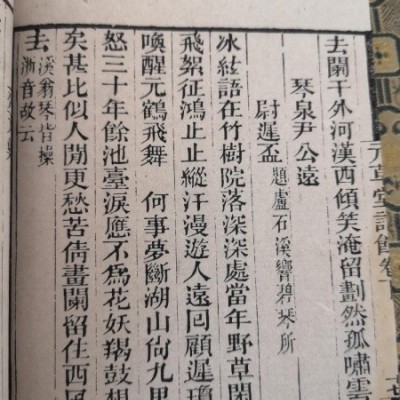 去闌干外河漢西傾笑淹留劃然孤嘯雲
琴泉尹公遠
尉遲盃題盧石溪響碧琴所
冰絃語在竹樹院落深深處當年野草閑
飛絮征鴻止止縱汗漫遊人遠回顧遲瓊
喚醒元鶴飛舞 何事夢斷湖山尙九里
怒三十年餘池臺淚應不爲花妖羯鼓想
矣甚比似人閒更愁苦倩畫闌留住西風
去溪翁琴皆操
淛音故云
元草堂詩餘卷下